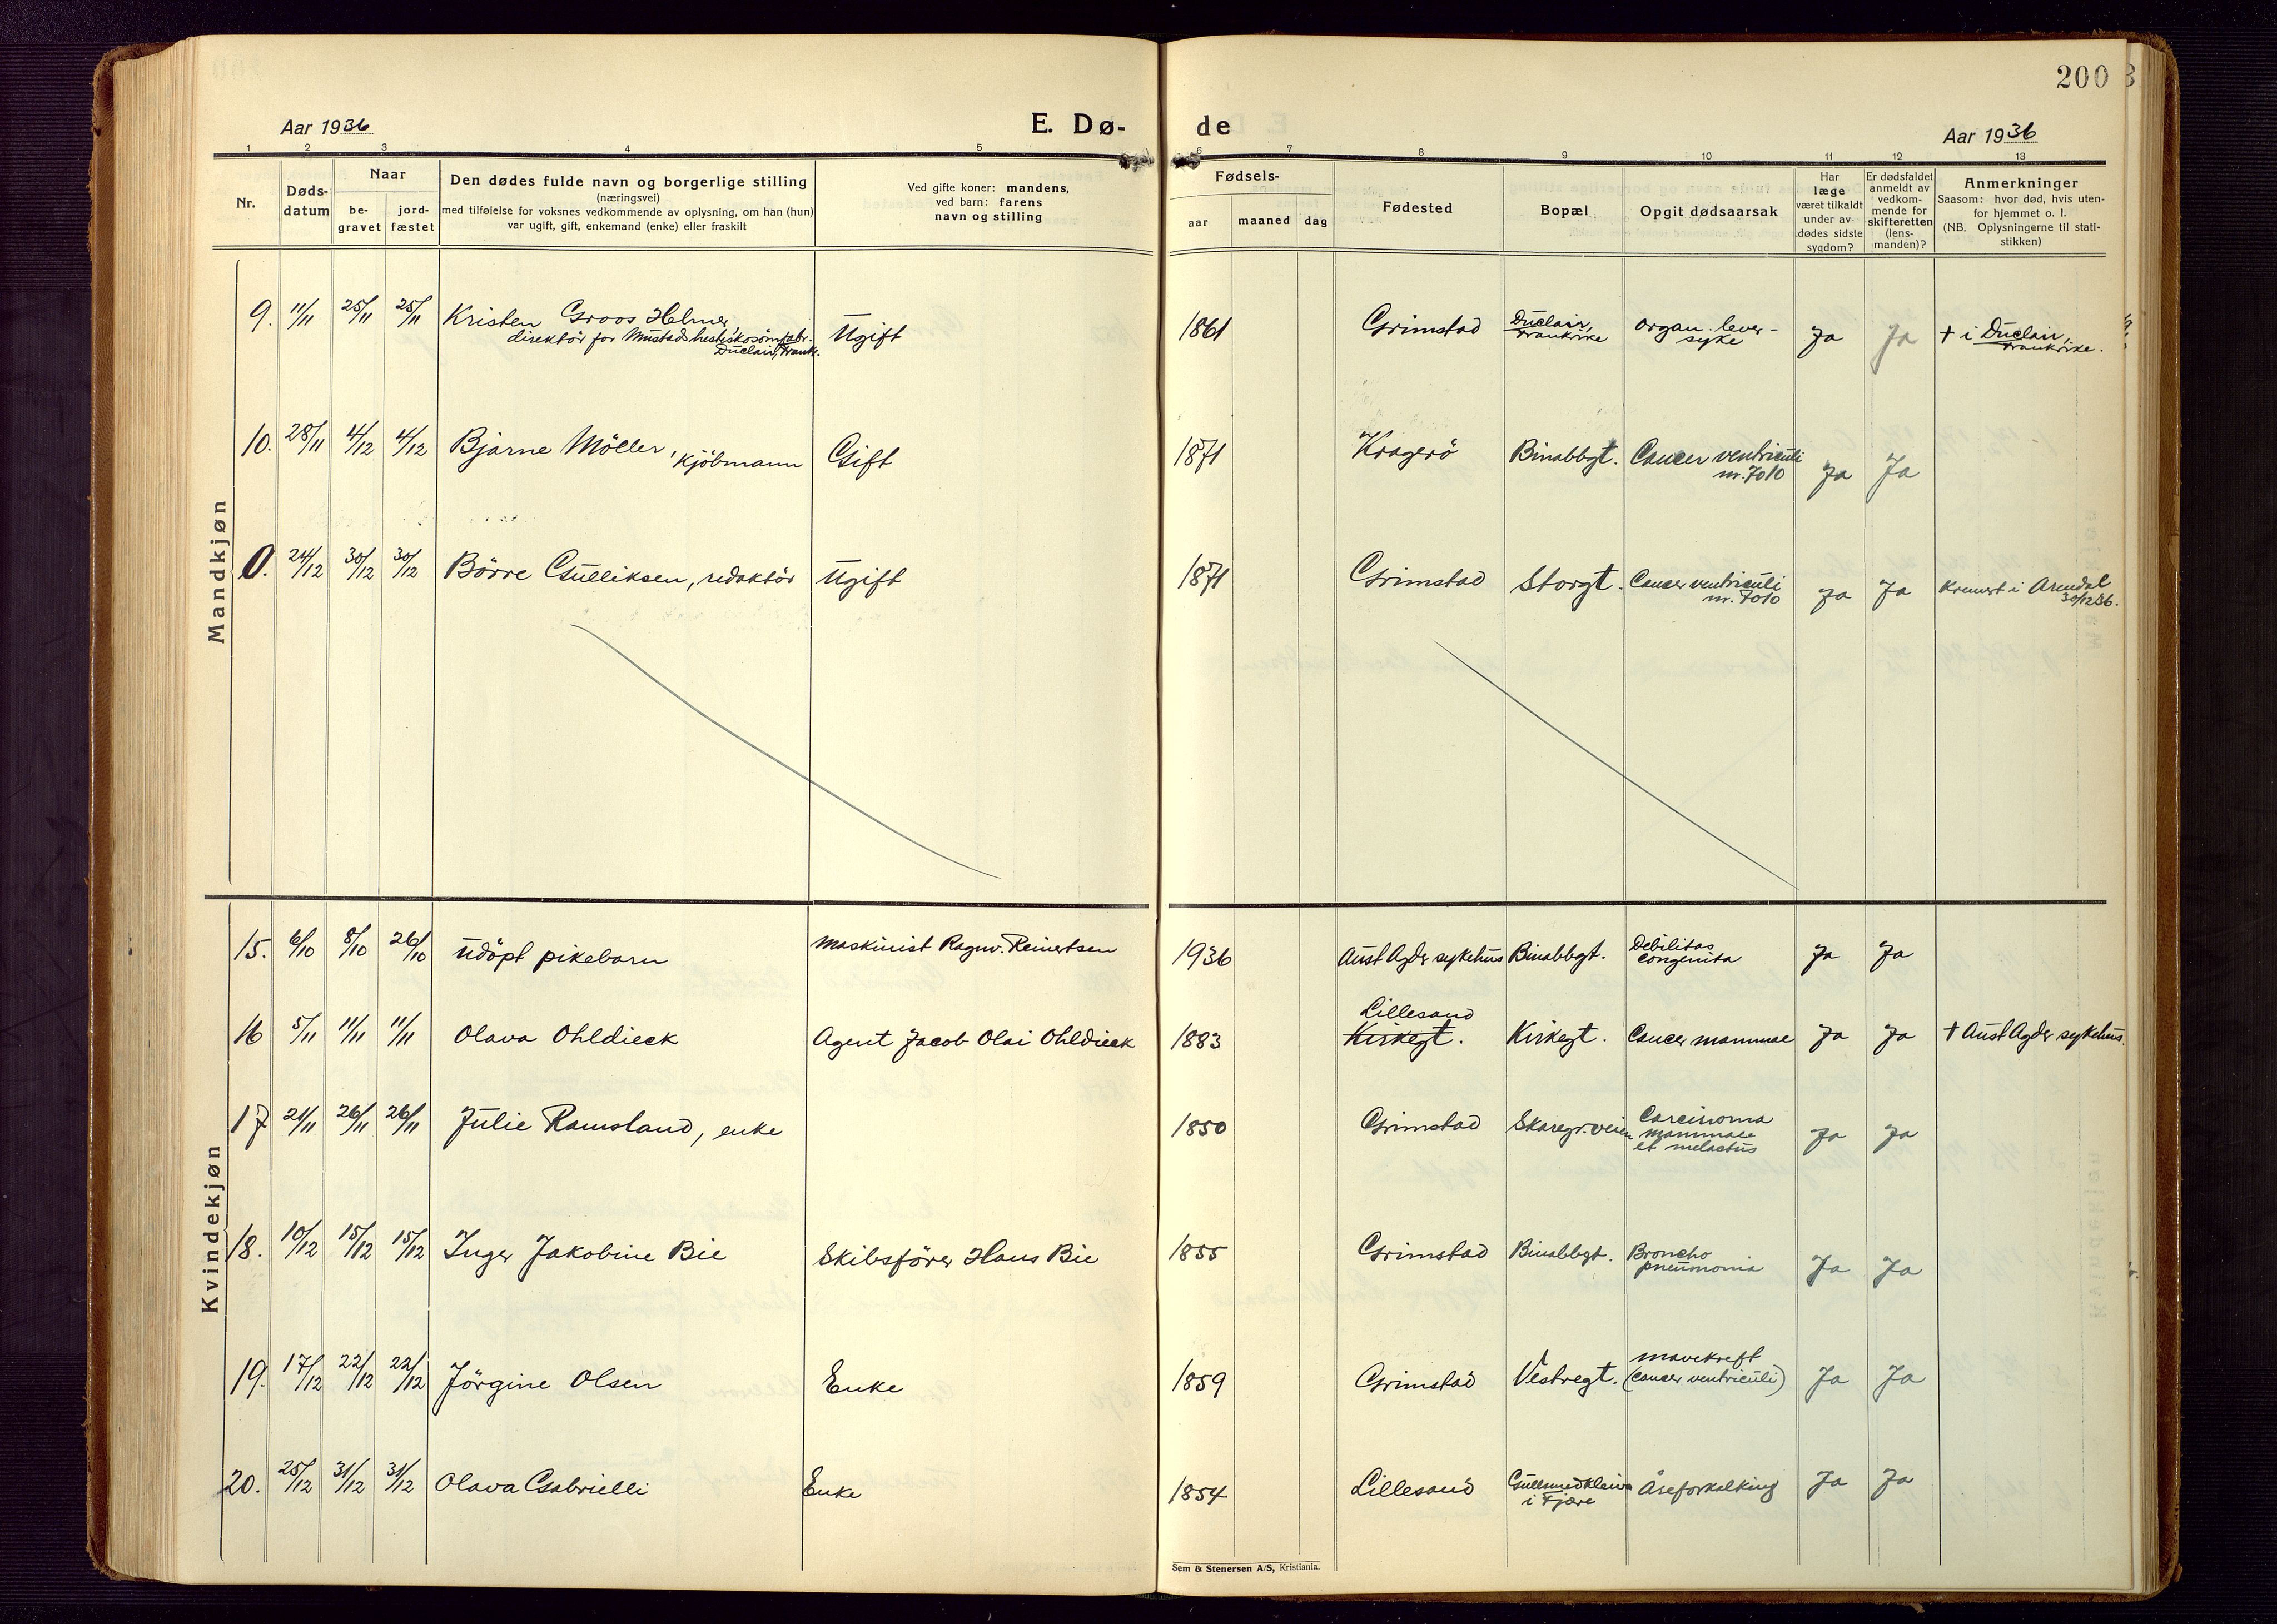 200
Aar 1936
E. Dø-
de
Aar 1936
1 2 3 4 5 6 7 8 9 10 11 12 13
Nr.
Døds-
datum
Naar
be-
gravet
jord-
fæstet
Den dødes fulde navn og borgerlige stilling
(næringsvei)
med tilføielse for voksnes vedkommende av oplysning, om han (hun)
var ugift, gift, enkemand (enke) eller fraskilt
Ved gifte koner: mandens,
ved barn: farens
navn og stilling
Fødsels-
aar maaned dag
Fødested
Bopæl
Opgit dødsaarsak
Har
læge
været tilkaldt
under av-
dødes sidste
sygdom?
Er dødsfaldet
anmeldt av
vedkom-
mende for
skifteretten
(lens-
manden)?
Anmerkninger
Saasom: hvor død, hvis uten-
for hjemmet o. l.
(NB. Oplysningerne til stati-
stikken)
Mandkjøn
9. 11/11 25/11 25/11 Kristen Groos Helmer,
direktör for Mustads hesteskosömfabr.
Duclair, Frank.
Ugift 1861 Grimstad
Duclair,
Frankrike
organ. lever-
syke
Ja Ja
† i Duclair,
Frankrike.
10. 28/11 4/12 4/12 Bjarne Möller, Kjöbmann Gift 1871 Kragerö Binabbgt. Cancer ventriculi
nr. 7010
Ja Ja
0. 24/12 30/12 30/12 Börre Gulliksen, redaktör Ugift 1871 Grimstad Storgt. Cancer ventriculi
nr. 7010
Ja Ja
Kremert i Arendal
30/12 36.
Kvindekjøn
15. 6/10 8/10 26/10 Udöpt pikebarn Maskinist Ragnv. Reinertsen 1936 Aust Agder sykehus Binabbgt.
Debilitas
congenita
Ja Ja
16 5/11 11/11 11/11 Olava Ohldieck Agent Jacob Olai Ohldieck 1883
Lillesand
Kirkegt.
Kirkegt. Cancer mammae Ja Ja † Aust Agder sykehus.
17 21/11 26/11 26/11 Julie Ramsland, enke 1850 Grimstad Skaregr.veien
Carcinoma
mammae
et
Ja Ja
18. 10/12 15/12 15/12 Inger Jakobine Bie Skibsförer Hans Bie 1855 Grimstad Binabbgt.
Broncho
pneumonia
Ja Ja
19. 17/12 22/12 22/12 Jörgine Olsen Enke 1859 Grimstad Vestregt.
mavekreft
(cancer ventriculi)
Ja Ja
20. 25/12 31/12 31/12 Olava Gabrielli Enke 1854 Lillesand
Gullsmedkleiva
i Fjære
Åreforkalking Ja Ja
Sem & Stenersen A/S, Kristiania.